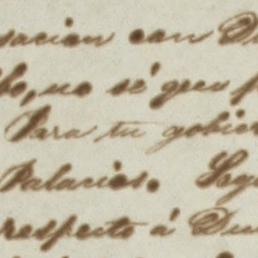 sacion con D
bo, no sé que p
Para tu gobier
Palacios. Leg
respecto á Du